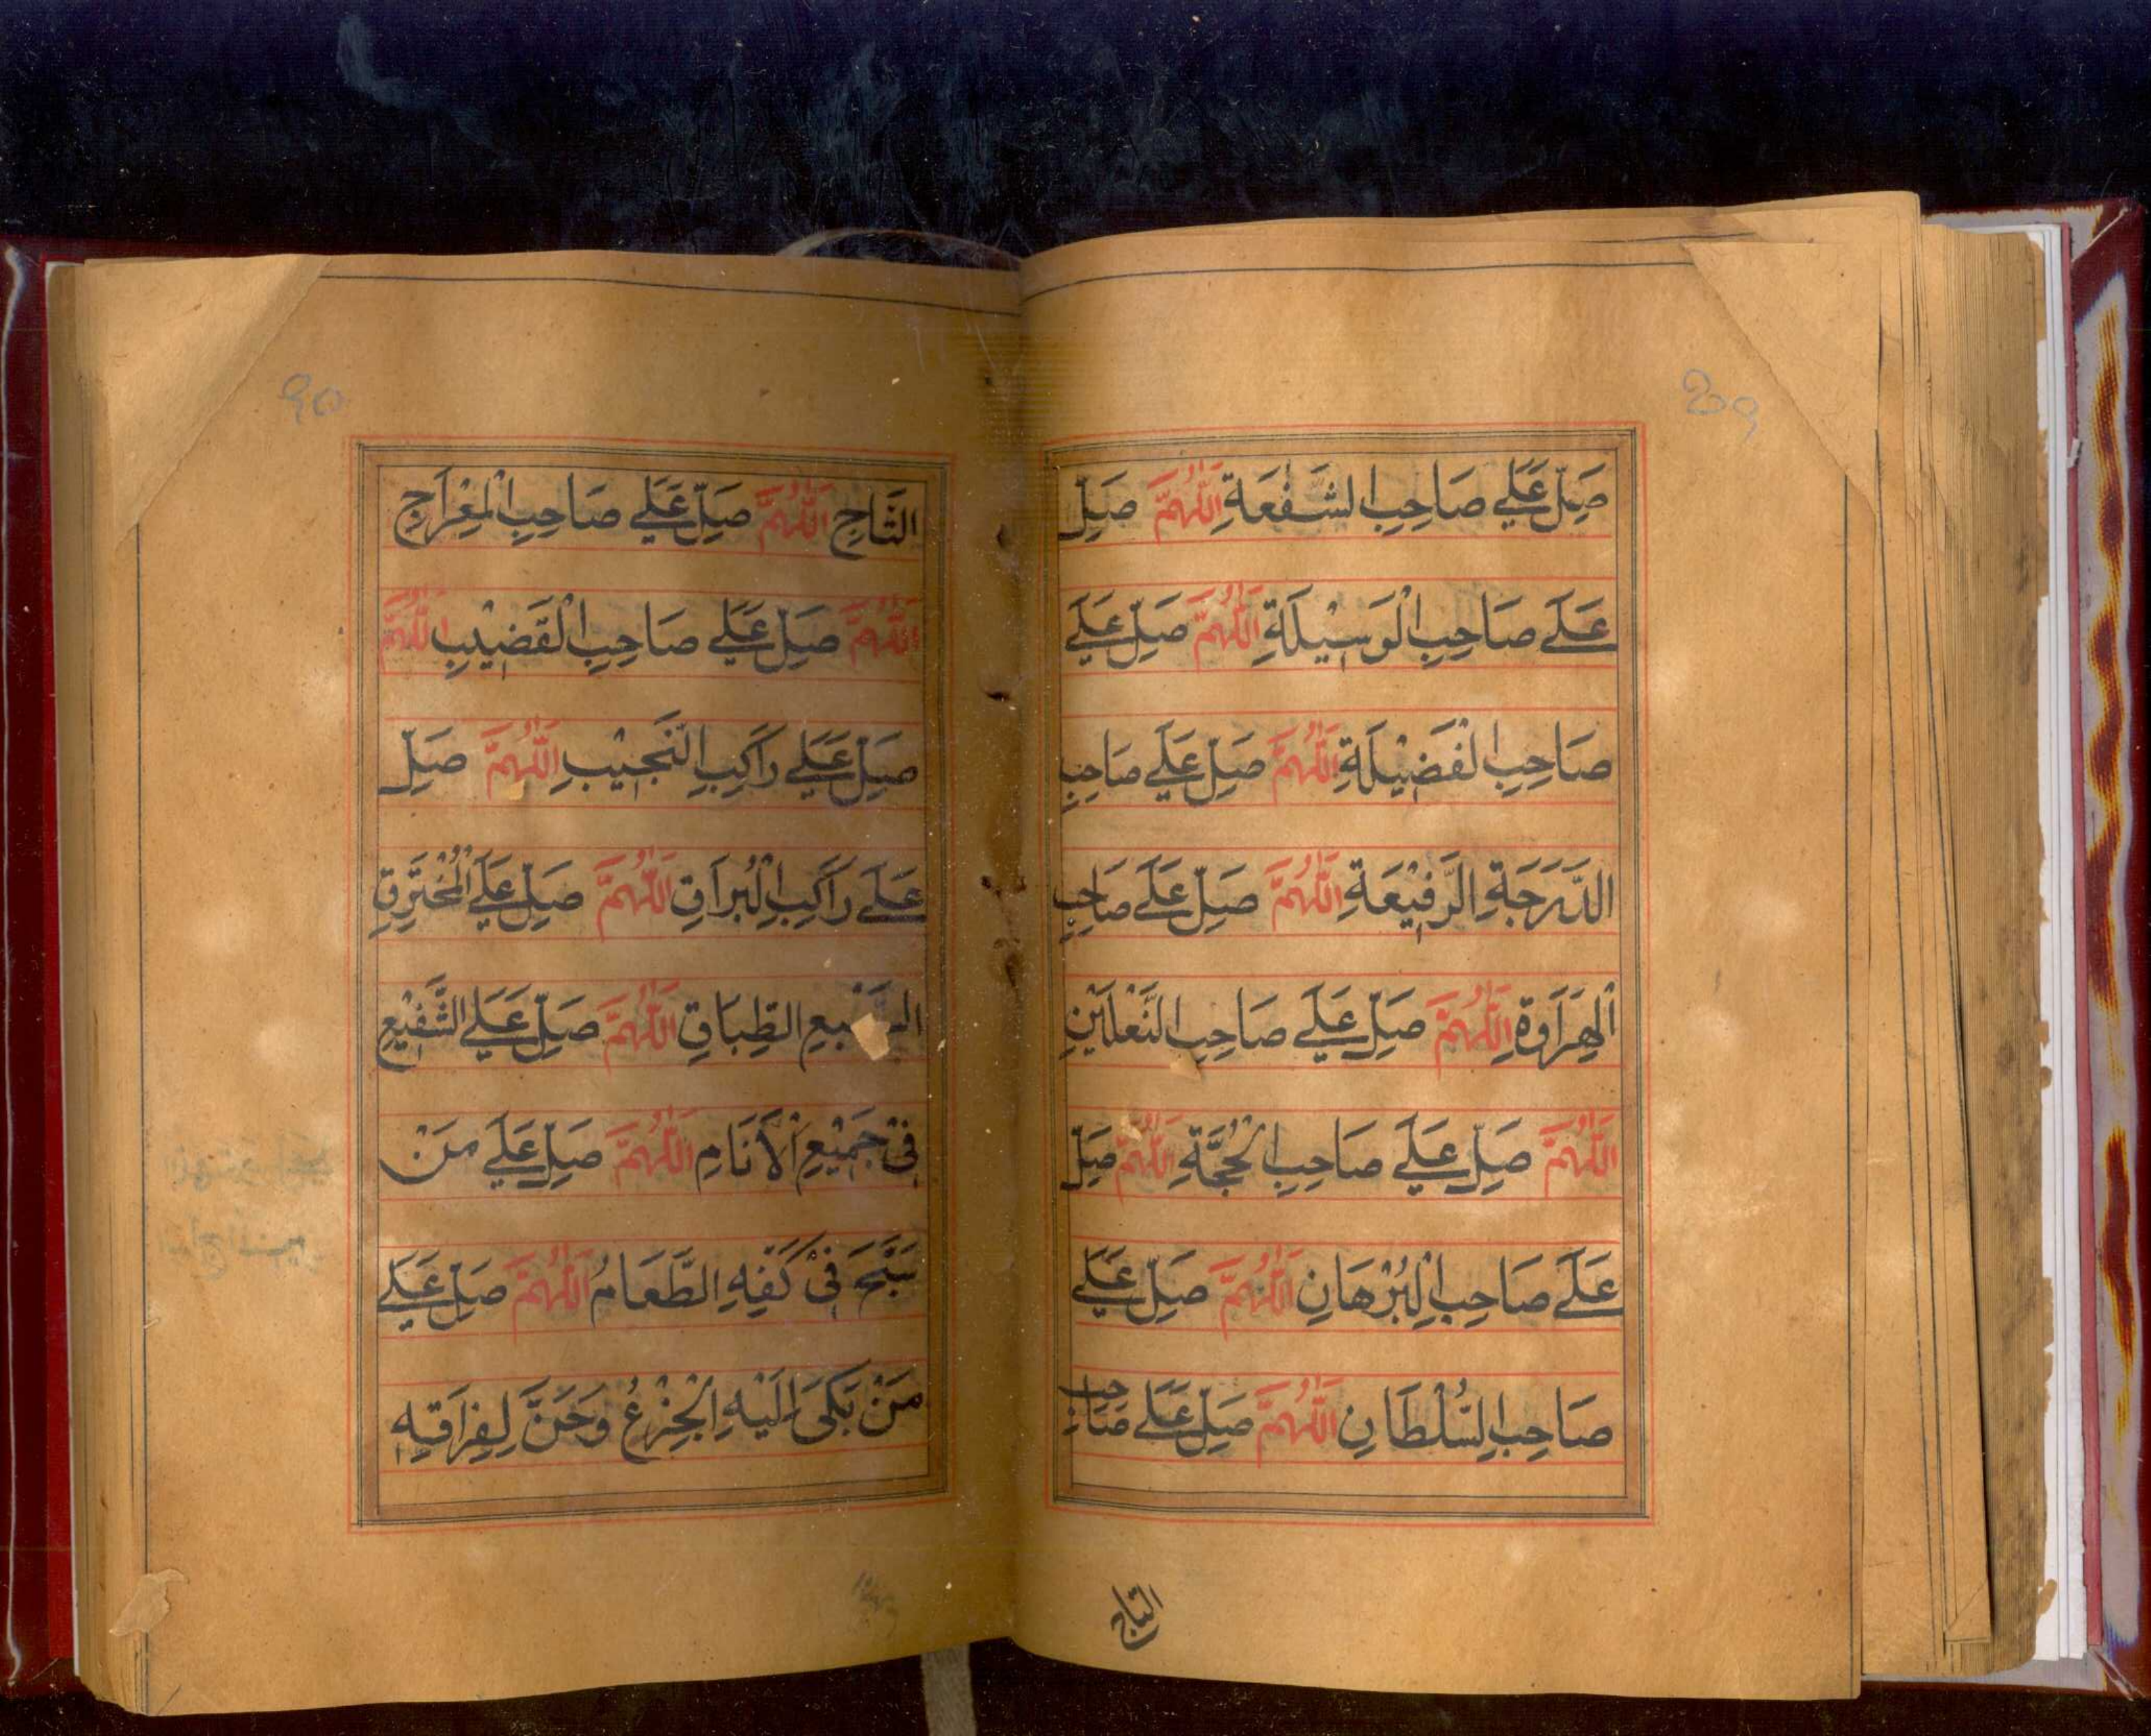 صَلِّ عَلٰے صَاحِبِ الشَّفْعَةِ اَللّٰهُمَّ صَلِّ
عَلٰے صَاحِبِ الْوَسِيْلَةِ اَللّٰهُمَّ صَلِّ عَلٰے
صَاحِبِ الْفَضِيْلَةِ اَللّٰهُمَّ صَلِّ عَلٰے صَاحِبِ
الدَّرَجَةِ الرَّفِيْعَةِ اَللّٰهُمَّ صَلِّ عَلٰے صَاحِبِ
الْهِرَاوَةِ اَللّٰهُمَّ صَلِّ عَلٰے صَاحِبِ النَّعْلَيْنِ
اَللّٰهُمَّ صَلِّ عَلٰے صَاحِبِ الْحُجَّةِ اَللّٰهُمَّ صَلِّ
عَلٰے صَاحِبِ الْبُرْهَانِ اَللّٰهُمَّ صَلِّ عَلٰے
صَاحِبِ السُّلْطَانِ اَللّٰهُمَّ صَلِّ عَلٰے صَاحِبِ
التاج
التَّاجِ اَللّٰهُمَّ صَلِّ عَلٰے صَاحِبِ الْمِعْرَاجِ
اَللّٰهُمَّ صَلِّ عَلٰے صَاحِبِ الْقَضِيْبِ اَللّٰهُمَّ
صَلِّ عَلٰے رَاكِبِ النَّجِيْبِ اَللّٰهُمَّ صَلِّ
عَلٰے رَاكِبِ الْبُرَاقِ اَللّٰهُمَّ صَلِّ عَلٰے الْمُخْتَرِقِ
السَّبْعِ الطِّبَاقِ اَللّٰهُمَّ صَلِّ عَلٰے الشَّفِيْعِ
فِىْ جَمِيْعِ الْاَنَامِ اَللّٰهُمَّ صَلِّ عَلٰے مَنْ
سَبَّحَ فِىْ كَفِّهِ الطَّعَامُ اَللّٰهُمَّ صَلِّ عَلٰے
مَنْ بَكٰى اِلَيْهِ الْجِذْعُ وَحَنَّ لِفِرَاقِهٖ